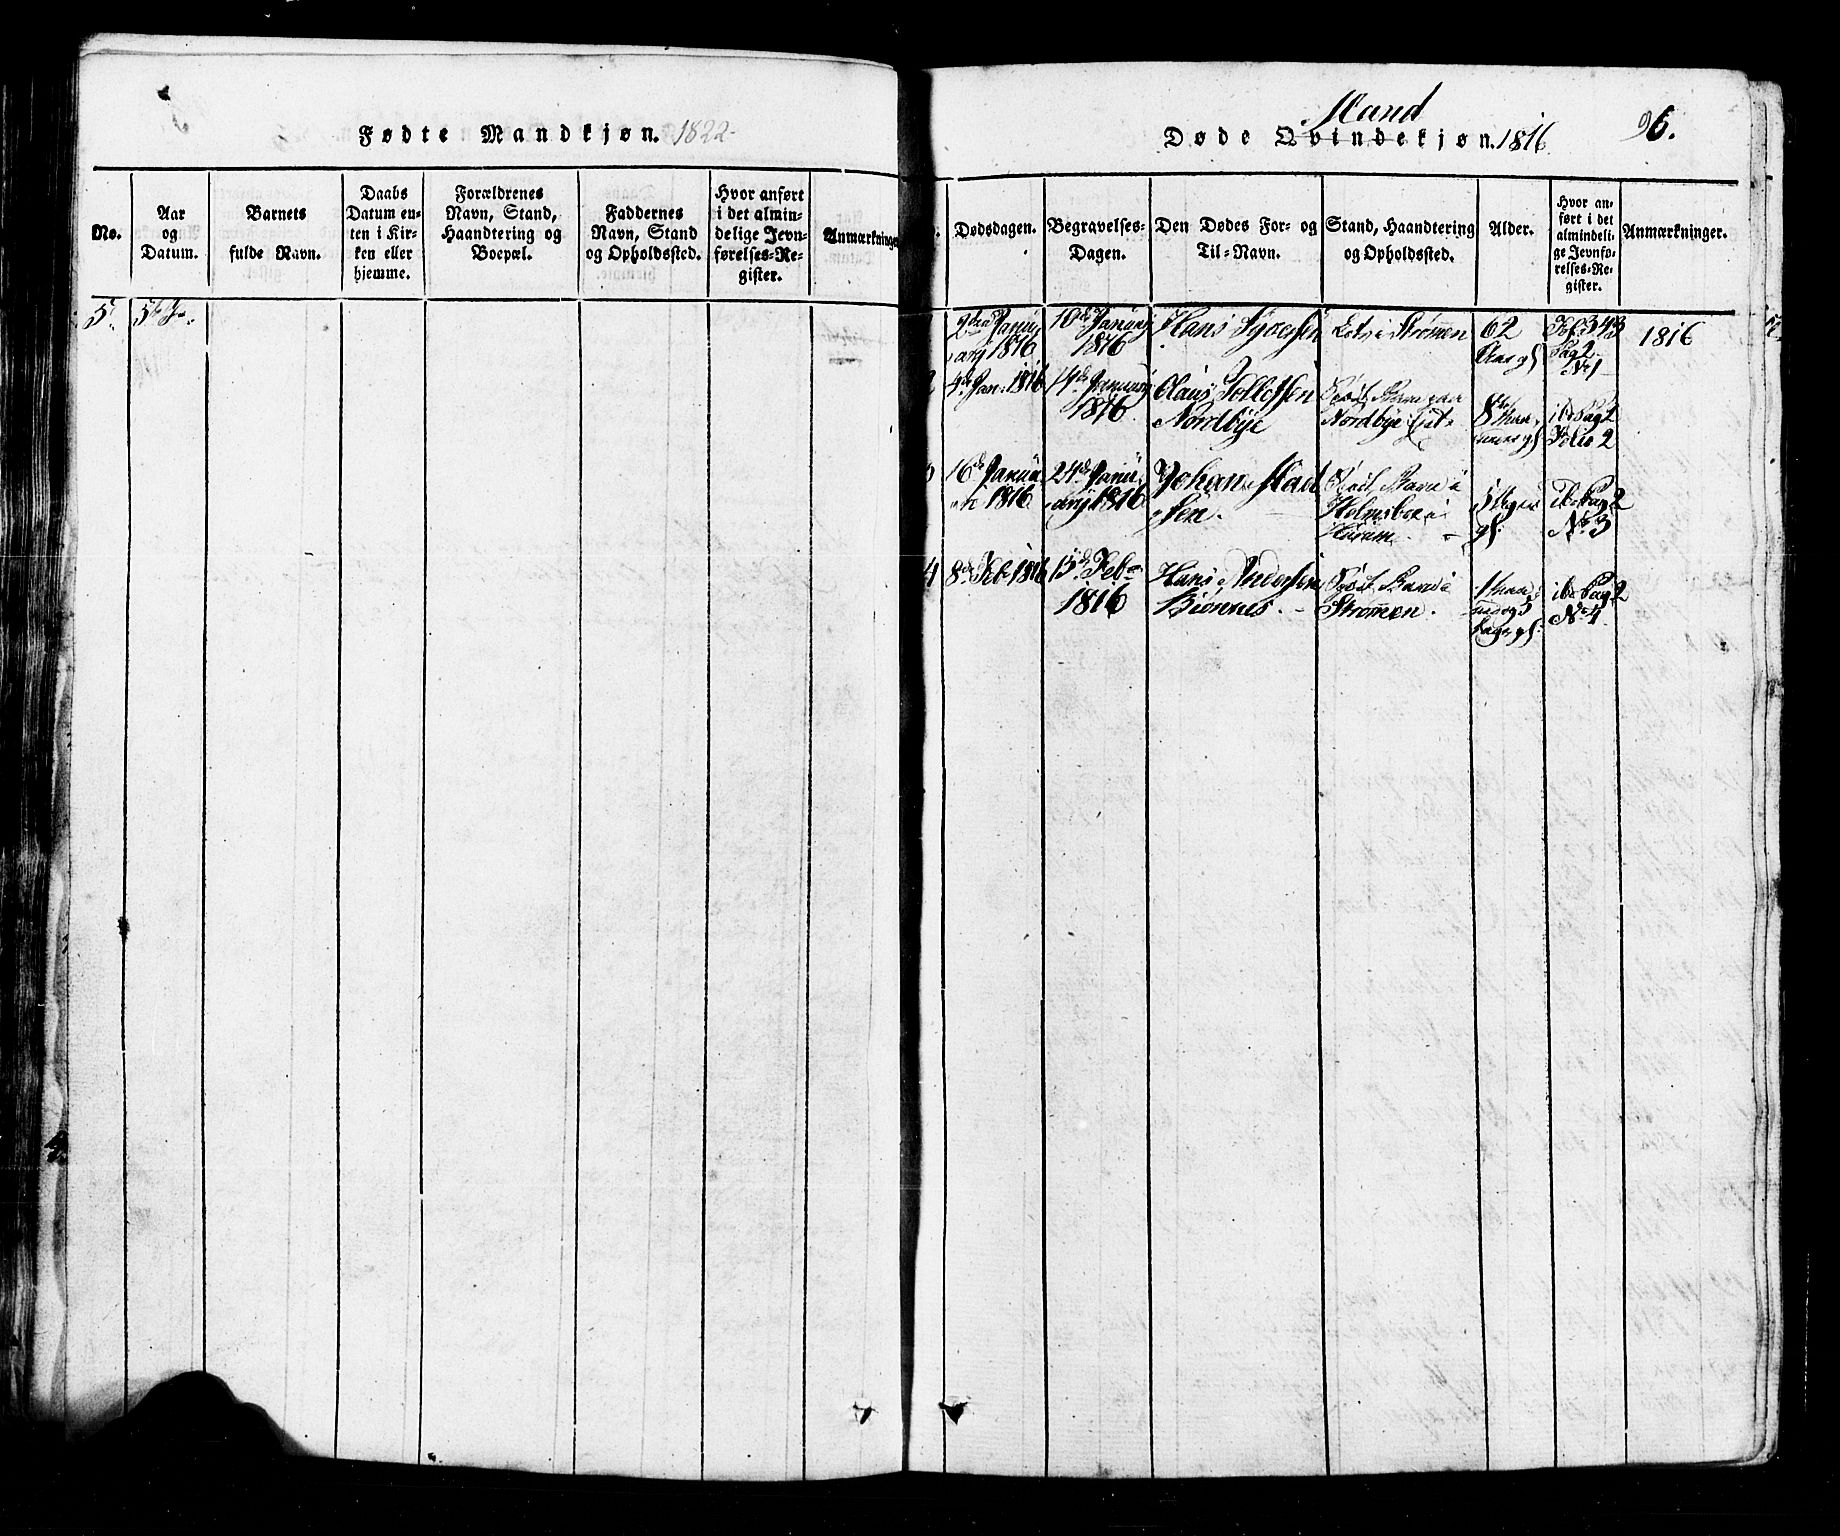 Fødte Mandkjøn. 1822-
No.
Aar
og
Datum.
Barnets
fulde Navn.
Daabs
Datum en-
ten i Kir-
ken eller
hjemme.
Forældrenes
Navn, Stand,
Haandtering og
Boepæl.
Faddernes
Navn, Stand
og Opholdssted.
Hvor anført
i det almin-
delige Jevn-
førelses-Re-
gister.
Anmærkninger
5.
Mand
Døde Qvindekjøn. 1816
96.
Dødsdagen.
Begravelses-
Dagen.
Den Dødes For- og
Til-Navn.
Stand, Haandtering
og Opholdssted.
Alder.
Hvor an-
ført i det
almindeli-
ge Jevnfø-
relses-Re-
gister.
Anmærkninger.
Janu
ary 1816
10de January
1816
Hans
Strømen
62
Aar gl
Fol. 343
Pag 2
No 1
1816
2
4de Jan: 1816
14de January
1816
Claus Tollefsen
Nordbye
Nordbye
8
ib Pag 2
Folio 2
16de Janua
1816
24de Janu
ary 1816
Johan Mad
sen.
Barn i
Holmsboe i
Hurum
gl:
ib Pag 2
No 3
4
8de Feb 1816
15de Feb
1816
Hans Andersen
Biørnes
Barn i
Strømen.
1
og 3
Dage gl:
ib Pag 2
No 4